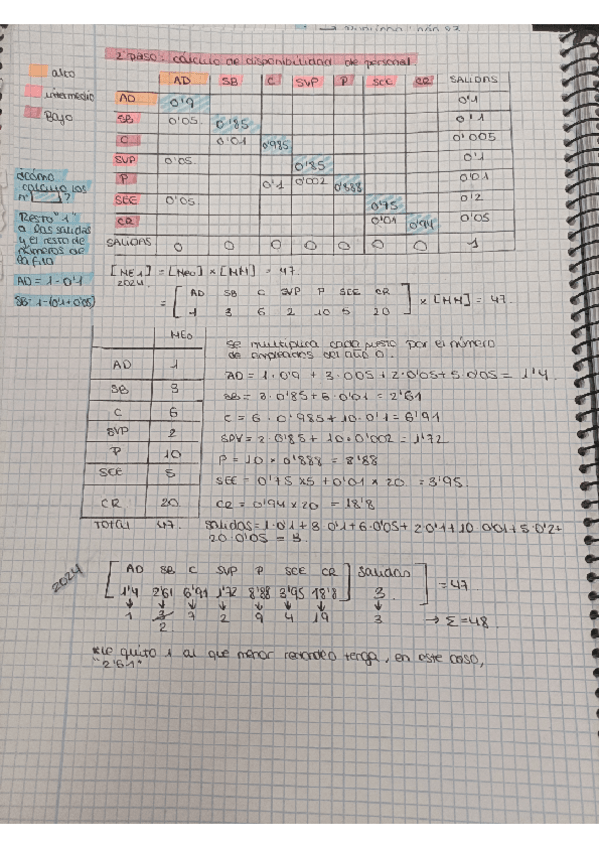 2º paso: cálculo de disponibilidad de personal.
alto
intermedio
Bajo
AD SB C SVP P SCE CR SALIDAS
AD 0'9 0'1
SB 0'05 0'85 0'1
C 0'01 0'985 0'005
SVP 0'05 0'85 0'1
P 0'1 0'002 0'888 0'01
SCE 0'05 0'75 0'2
CR 0'01 0'94 0'05
SALIDAS 0 0 0 0 0 0 0 1
¿cómo
calculo los
nº ?
Resto "1"
a las salidas
y el resto de
números de
la fila
AD = 1 - 0'1
SB = 1 - (0'1 + 0'05)
[NE1] = [NEO] × [MM] = 47.
2024
= [ AD SB C SVP P SCE CR
1 3 6 2 10 5 20 ] × [MM] = 47.
NEO
AD 1
SB 3
C 6
SVP 2
P 10
SCE 5
CR 20
TOTAL 47.
Se multiplica cada puesto por el número
de empleados del año 0.
AD = 1·0'9 + 3·0'05 + 2·0'05 + 5·0'05 = 1'4.
SB = 3·0'85 + 6·0'01 = 2'61
C = 6·0'985 + 10·0'1 = 6'91
SPV = 2·0'85 + 10·0'002 = 1'72
P = 10 × 0'888 = 8'88
SCE = 0'75 × 5 + 0'01 × 20 = 3'95.
CR = 0'94 × 20 = 18'8
Salidas = 1·0'1 + 3·0'1 + 6·0'05 + 2·0'1 + 10·0'01 + 5·0'2 +
20·0'05 = 3.
2024
[ AD SB C SVP P SCE CR ] Salidas
1'4 2'61 6'91 1'72 8'88 3'95 18'8 3 ] = 47
1 3 7 2 9 4 19 3 → Σ = 48
2
*Le quito 1 al que menor redondeo tenga, en este caso,
"2'61"